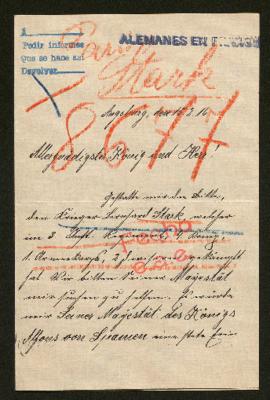 A
Pedir informes
Que se hace así
Devolver
ALEMANES EN
Stark
Augsburg, den 18.3.16
8677
Allergnädigster König und Herr!
Gestatte mir die Bitte,
den Krieger Leonhard Stark, welcher
im 3. Inft. Regiment, 4. Komp.
1. Armeekorps, 2. Division gekämpft
hat. Wir bitten Seiner Majestät
mir suchen zu helfen. Es würde
mir Seines Magestät des Königs
Alfons von Spanien eine stete